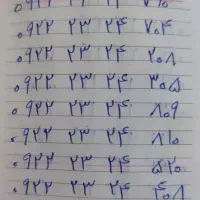 ۰۹۲۲ ۲۳ ۲۴ ۷۱۰
۰۹۲۲ ۲۳ ۲۴ ۷۰۴
۰۹۲۲ ۲۳ ۲۴ ۲۰۸
۰۹۲۲ ۲۳ ۲۴ ۳۰۵
۰۹۲۲ ۲۳ ۲۴ ۸۰۹
۰۹۲۲ ۲۳ ۲۴ ۸۱۰
۰۹۲۲ ۲۳ ۲۴ ۵۲۰
۰۹۲۲ ۲۳ ۲۴ ۴۰۸